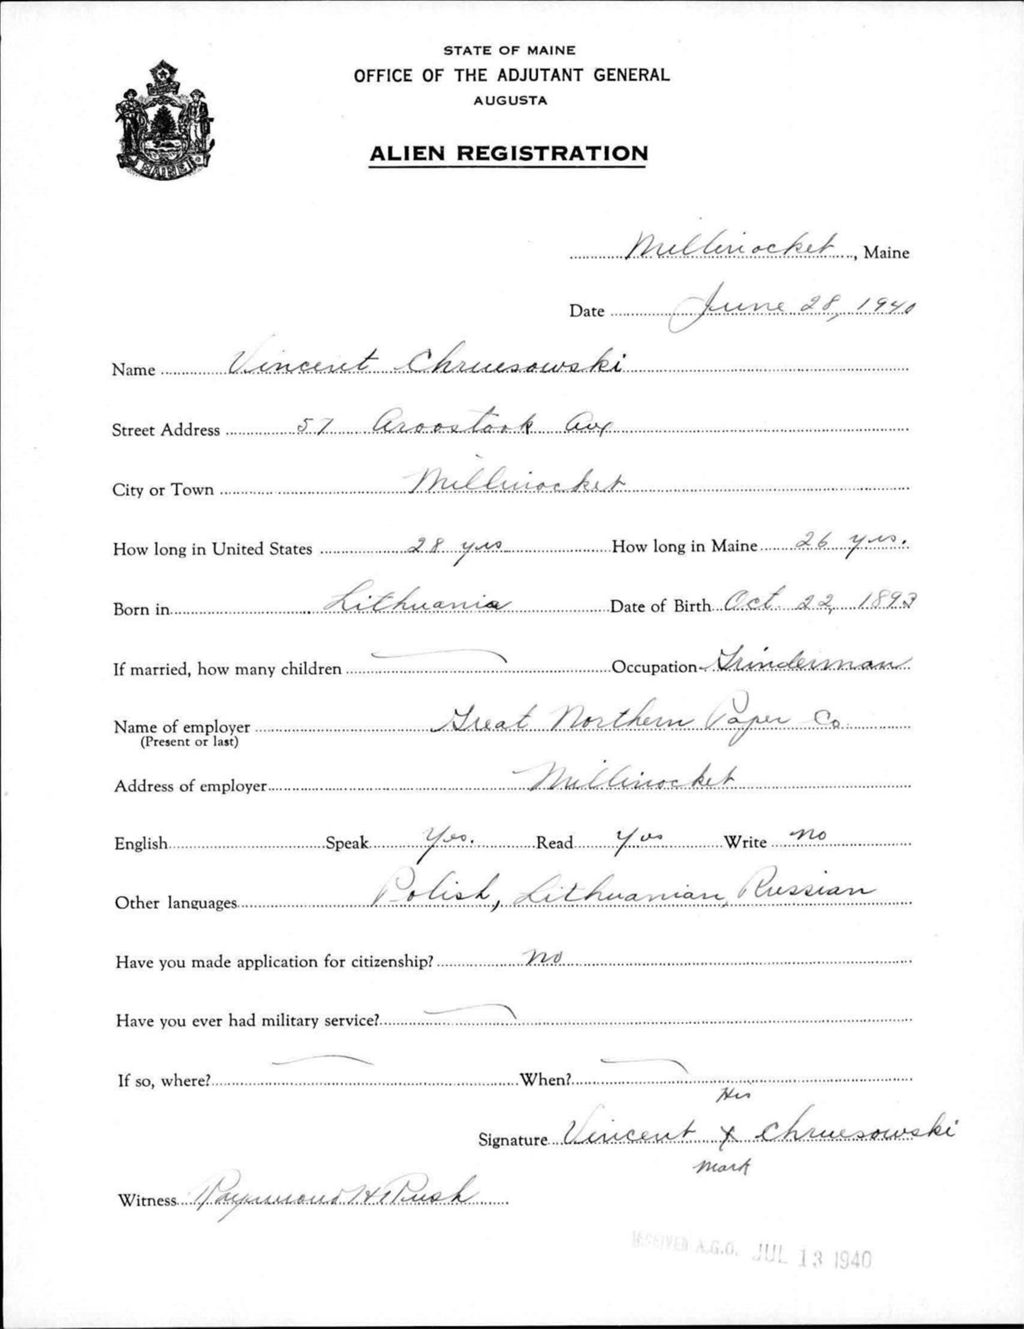 STATE OF MAINE
OFFICE OF THE ADJUTANT GENERAL
AUGUSTA
ALIEN REGISTRATION
MAINE
Millinocket, Maine
Date June 28, 1940
Name Vincent Chruesowski
Street Address 57 Aroostook Ave
City or Town Millinocket
How long in United States 28 yrs How long in Maine 26 yrs.
Born in Lithuania Date of Birth Oct 22, 1893
If married, how many children Occupation Grinderman
Name of employer Great Northern Paper Co
(Present or last)
Address of employer Millinocket
English Speak Yes. Read Yes Write no
Other languages Polish, Lithuanian, Russian
Have you made application for citizenship? No
Have you ever had military service?
If so, where? When?
His
Signature Vincent X Chruesowski
mark
Witness Raymond H Rush
RECEIVED A.G.O. JUL 13 1940